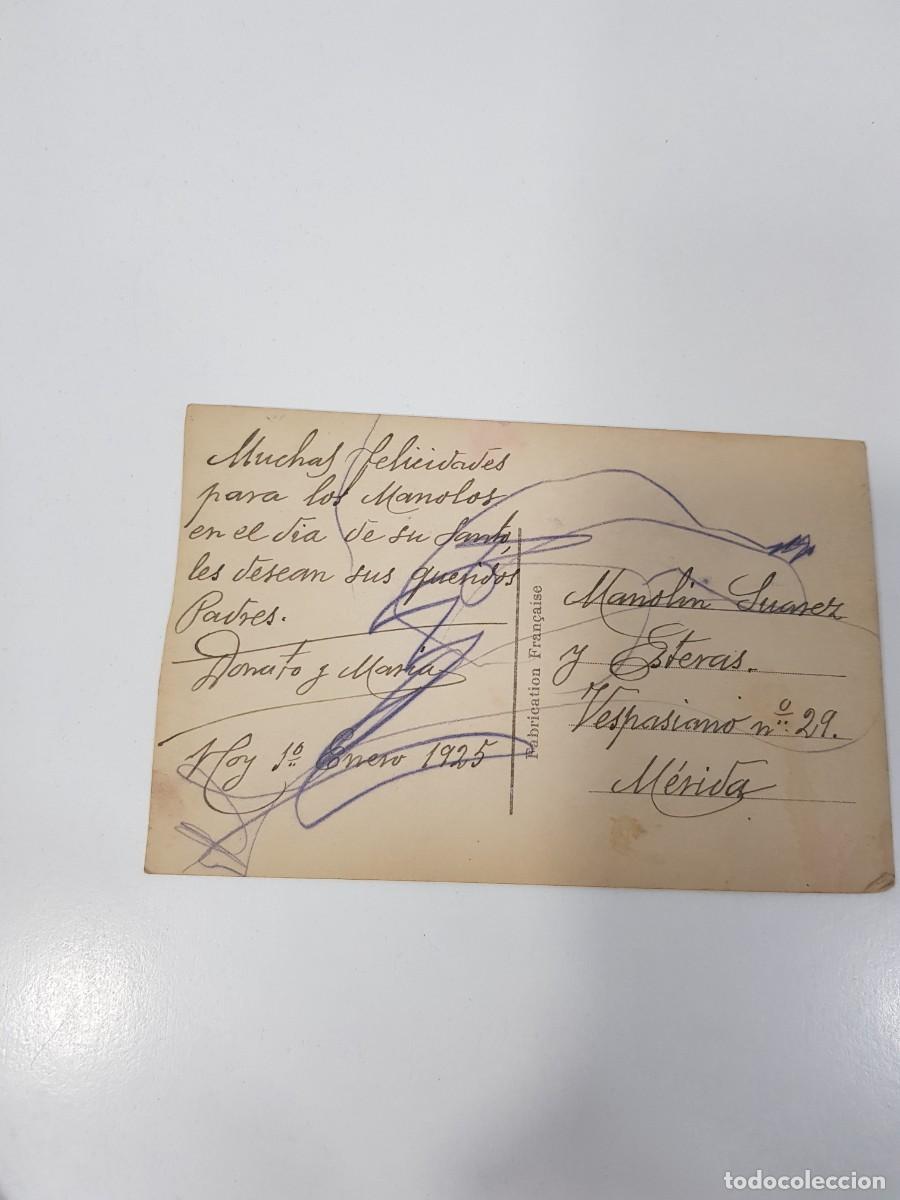 Muchas felicidades
para los Manolos
en el dia de su Santo,
les desean sus queridos
Padres.
Donato y Maria
Hoy 1º Enero 1925
Fabrication Française
Manolin Suarez
y Esteras.
Vespasiano nº 29.
Mérida
todocoleccion